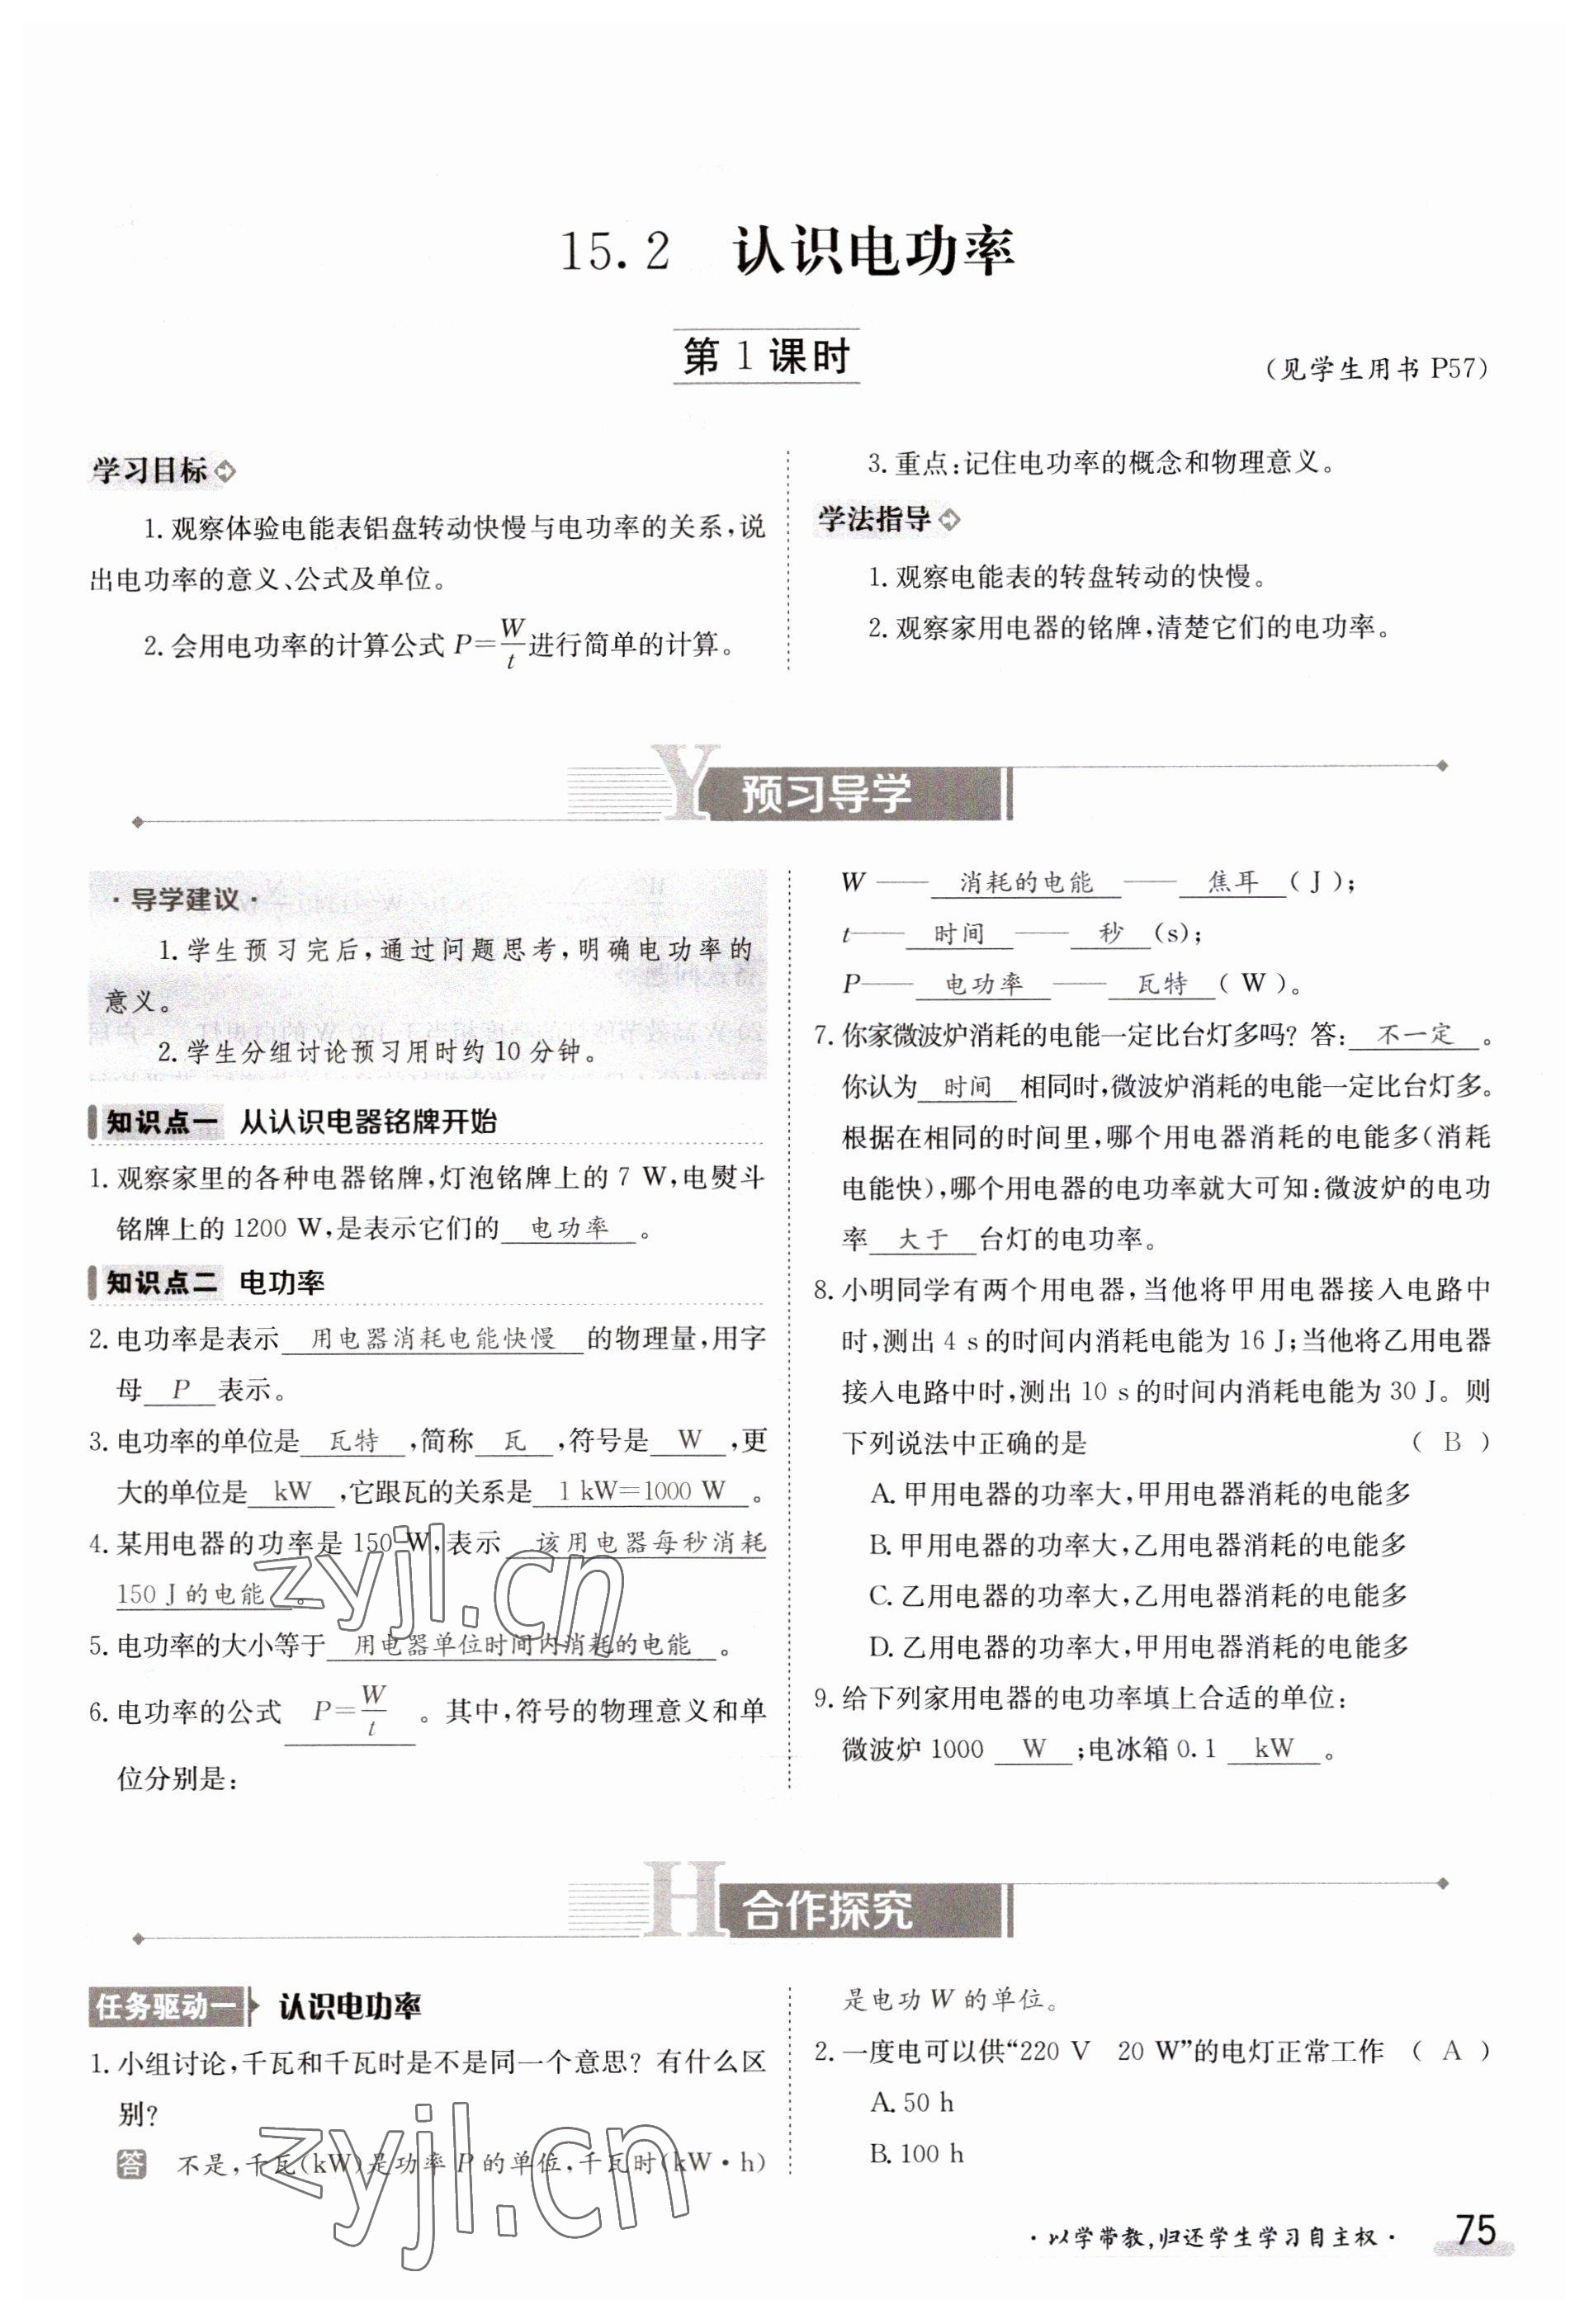 15.2 认识电功率
第 1 课时
（见学生用书 P57）
学习目标
1. 观察体验电能表铝盘转动快慢与电功率的关系，说
出电功率的意义、公式及单位。
2. 会用电功率的计算公式 P=W/t进行简单的计算。
3. 重点：记住电功率的概念和物理意义。
学法指导
1. 观察电能表的转盘转动的快慢。
2. 观察家用电器的铭牌，清楚它们的电功率。
Y 预习导学
·导学建议·
1. 学生预习完后，通过问题思考，明确电功率的
意义。
2. 学生分组讨论预习用时约 10 分钟。
知识点一 从认识电器铭牌开始
1. 观察家里的各种电器铭牌，灯泡铭牌上的 7 W，电熨斗
铭牌上的 1200 W，是表示它们的 电功率 。
知识点二 电功率
2. 电功率是表示 用电器消耗电能快慢 的物理量，用字
母 P 表示。
3. 电功率的单位是 瓦特 ，简称 瓦 ，符号是 W ，更
大的单位是 kW ，它跟瓦的关系是 1 kW=1000 W 。
4. 某用电器的功率是 150 W，表示 该用电器每秒消耗
150 J 的电能 。
5. 电功率的大小等于 用电器单位时间内消耗的电能 。
6. 电功率的公式 P=W/t 。其中，符号的物理意义和单
位分别是：
W —— 消耗的电能 —— 焦耳 （ J ）；
t—— 时间 —— 秒 （s）；
P—— 电功率 —— 瓦特 （ W ）。
7. 你家微波炉消耗的电能一定比台灯多吗？答： 不一定 。
你认为 时间 相同时，微波炉消耗的电能一定比台灯多。
根据在相同的时间里，哪个用电器消耗的电能多（消耗
电能快），哪个用电器的电功率就大可知：微波炉的电功
率 大于 台灯的电功率。
8. 小明同学有两个用电器，当他将甲用电器接入电路中
时，测出 4 s 的时间内消耗电能为 16 J；当他将乙用电器
接入电路中时，测出 10 s 的时间内消耗电能为 30 J。则
下列说法中正确的是 （ B ）
A. 甲用电器的功率大，甲用电器消耗的电能多
B. 甲用电器的功率大，乙用电器消耗的电能多
C. 乙用电器的功率大，乙用电器消耗的电能多
D. 乙用电器的功率大，甲用电器消耗的电能多
9. 给下列家用电器的电功率填上合适的单位：
微波炉 1000 W ；电冰箱 0.1 kW 。
H 合作探究
任务驱动一 认识电功率
1. 小组讨论，千瓦和千瓦时是不是同一个意思？有什么区
别？
答 不是，千瓦(kW)是功率 P 的单位，千瓦时(kW·h)
是电功 W 的单位。
2. 一度电可以供“220 V 20 W”的电灯正常工作 （ A ）
A. 50 h
B. 100 h
zyjl.cn
zyjl.cn
·以学带教，归还学生学习自主权· 75